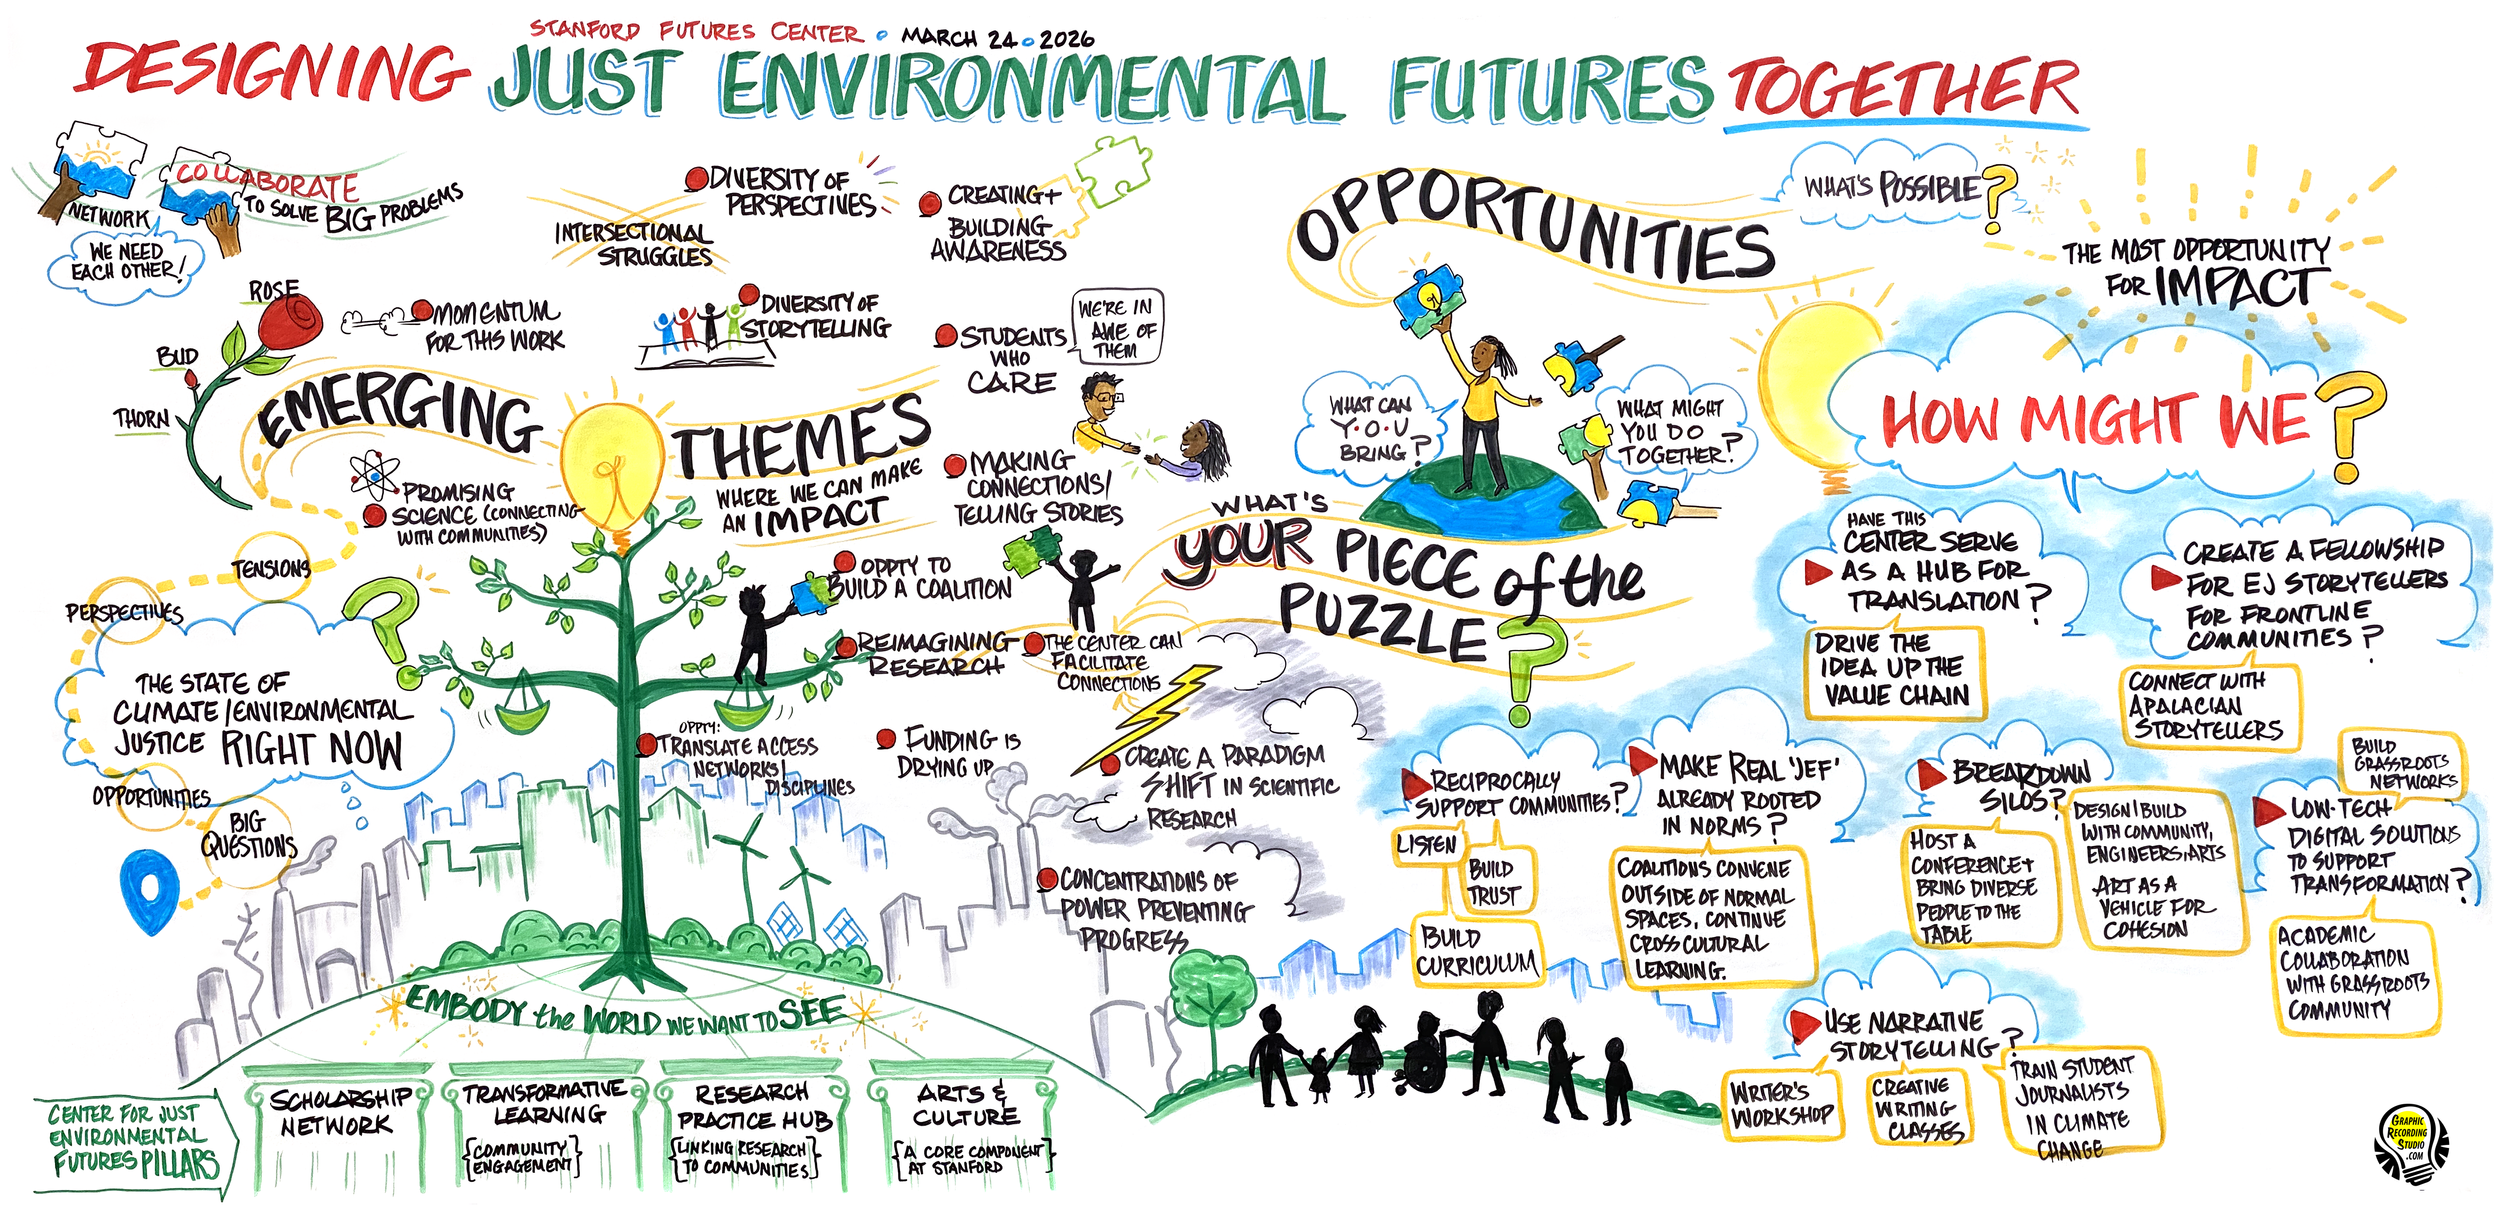 STANFORD FUTURES CENTER • MARCH 24 • 2026
DESIGNING JUST ENVIRONMENTAL FUTURES TOGETHER
COLLABORATE
TO SOLVE BIG PROBLEMS
NETWORK
WE NEED
EACH OTHER!
ROSE
BUD
THORN
MOMENTUM
FOR THIS WORK
INTERSECTIONAL
STRUGGLES
DIVERSITY OF
PERSPECTIVES
CREATING +
BUILDING
AWARENESS
DIVERSITY OF
STORYTELLING
STUDENTS
WHO
CARE
WE'RE IN
AWE OF
THEM
EMERGING
THEMES
WHERE WE CAN MAKE
AN IMPACT
PROMISING
SCIENCE (CONNECTING
WITH COMMUNITIES)
MAKING
CONNECTIONS/
TELLING STORIES
OPPTY TO
BUILD A COALITION
REIMAGINING
RESEARCH
THE CENTER CAN
FACILITATE
CONNECTIONS
TENSIONS
PERSPECTIVES
THE STATE OF
CLIMATE/ENVIRONMENTAL
JUSTICE RIGHT NOW
?
OPPORTUNITIES
BIG
QUESTIONS
OPPTY:
TRANSLATE ACCESS
NETWORKS/
DISCIPLINES
FUNDING IS
DRYING UP
CREATE A PARADIGM
SHIFT IN SCIENTIFIC
RESEARCH
CONCENTRATIONS OF
POWER PREVENTING
PROGRESS
EMBODY the WORLD WE WANT TO SEE
CENTER FOR JUST
ENVIRONMENTAL
FUTURES PILLARS
SCHOLARSHIP
NETWORK
TRANSFORMATIVE
LEARNING
{COMMUNITY
ENGAGEMENT}
RESEARCH
PRACTICE HUB
{LINKING RESEARCH
TO COMMUNITIES}
ARTS &
CULTURE
{A CORE COMPONENT
AT STANFORD}
OPPORTUNITIES
WHAT'S POSSIBLE?
THE MOST OPPORTUNITY
FOR IMPACT
WHAT CAN
Y•O•U
BRING?
WHAT MIGHT
YOU DO
TOGETHER?
WHAT'S
YOUR PIECE of the
PUZZLE?
HOW MIGHT WE?
HAVE THIS
CENTER SERVE
AS A HUB FOR
TRANSLATION?
DRIVE THE
IDEA UP THE
VALUE CHAIN
CREATE A FELLOWSHIP
FOR EJ STORYTELLERS
FOR FRONTLINE
COMMUNITIES?
CONNECT WITH
APALACIAN
STORYTELLERS
RECIPROCALLY
SUPPORT COMMUNITIES?
LISTEN
BUILD
TRUST
BUILD
CURRICULUM
MAKE REAL 'JEF'
ALREADY ROOTED
IN NORMS?
COALITIONS CONVENE
OUTSIDE OF NORMAL
SPACES, CONTINUE
CROSS CULTURAL
LEARNING.
BREAKDOWN
SILOS?
HOST A
CONFERENCE +
BRING DIVERSE
PEOPLE TO THE
TABLE
DESIGN/BUILD
WITH COMMUNITY,
ENGINEERS, ARTS
ART AS A
VEHICLE FOR
COHESION
BUILD
GRASSROOTS
NETWORKS
LOW-TECH
DIGITAL SOLUTIONS
TO SUPPORT
TRANSFORMATION?
ACADEMIC
COLLABORATION
WITH GRASSROOTS
COMMUNITY
USE NARRATIVE
STORYTELLING?
WRITER'S
WORKSHOP
CREATIVE
WRITING
CLASSES
TRAIN STUDENT
JOURNALISTS
IN CLIMATE
CHANGE
GRAPHIC
RECORDING
STUDIO
.COM